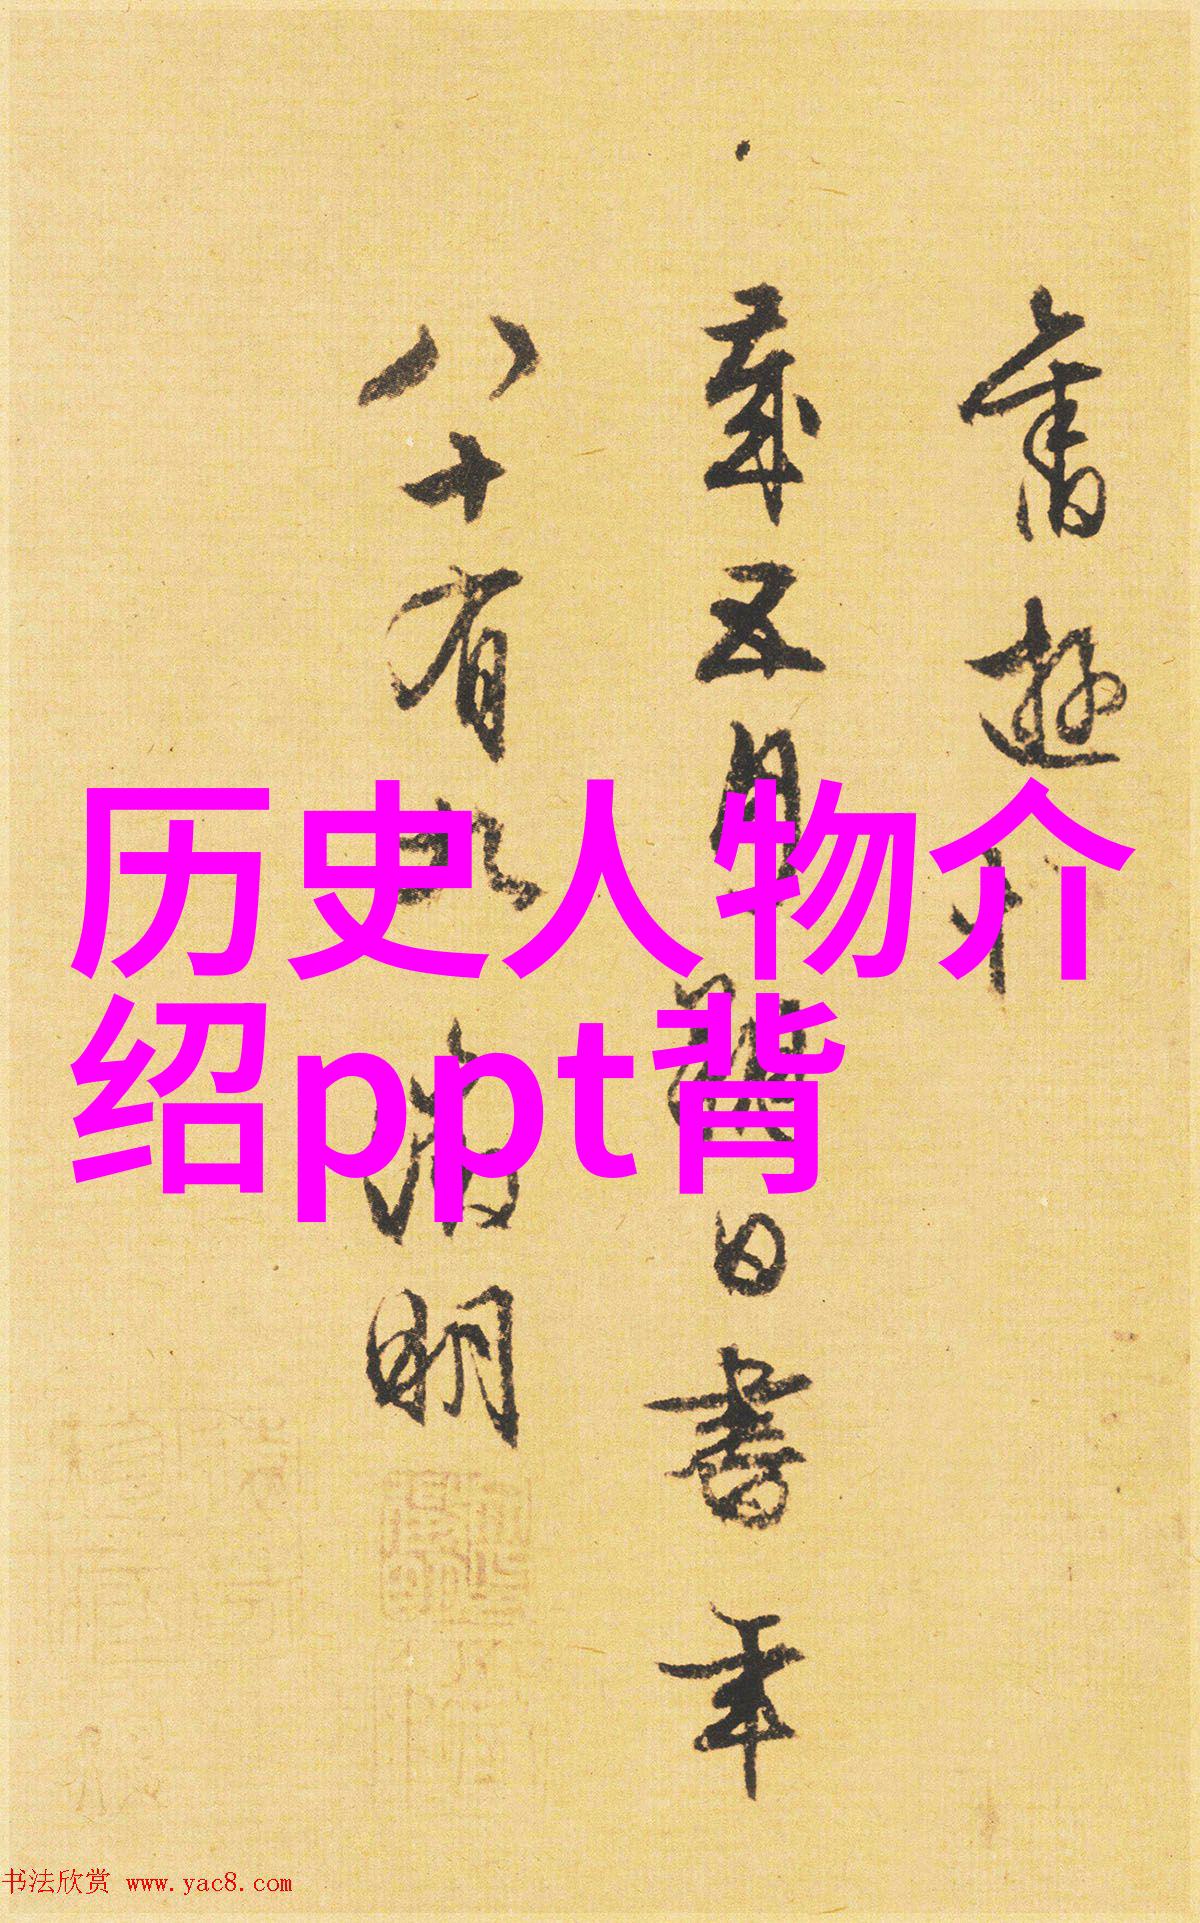 历史人物介
绍ppt背
舊遊
歲五月日書年
八十有徵明
书法欣赏 www.yac8.com